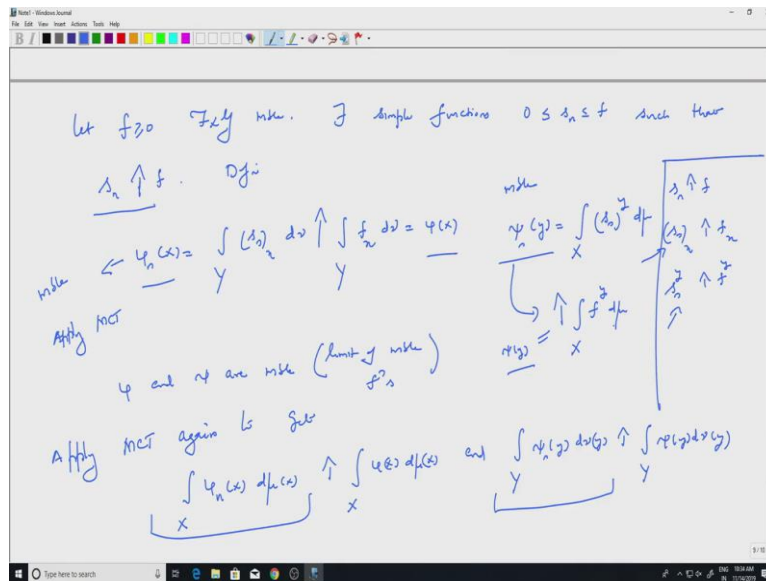 Note1 - Windows Journal
File Edit View Insert Actions Tools Help
let f≥0 F×G mble. ∃ simple functions 0 ≤ s_n ≤ f such that
s_n ↑ f. Define
mble ← φ_n(x) = ∫_Y (s_n)_x dν ↑ ∫_Y f_x dν = φ(x)
mble
ψ_n(y) = ∫_X (s_n)^y dμ
↑ ∫_X f^y dμ
ψ(y) =
s_n ↑ f
(s_n)_x ↑ f_x
s_n^y ↑ f^y
Apply MCT
φ and ψ are mble (limit of mble f^n s)
Apply MCT again to get
∫_X φ_n(x) dμ(x) ↑ ∫_X φ(x) dμ(x) and ∫_Y ψ_n(y) dν(y) ↑ ∫_Y ψ(y) dν(y)
9/10
Type here to search
ENG 10:34 AM
IN 11/14/2019